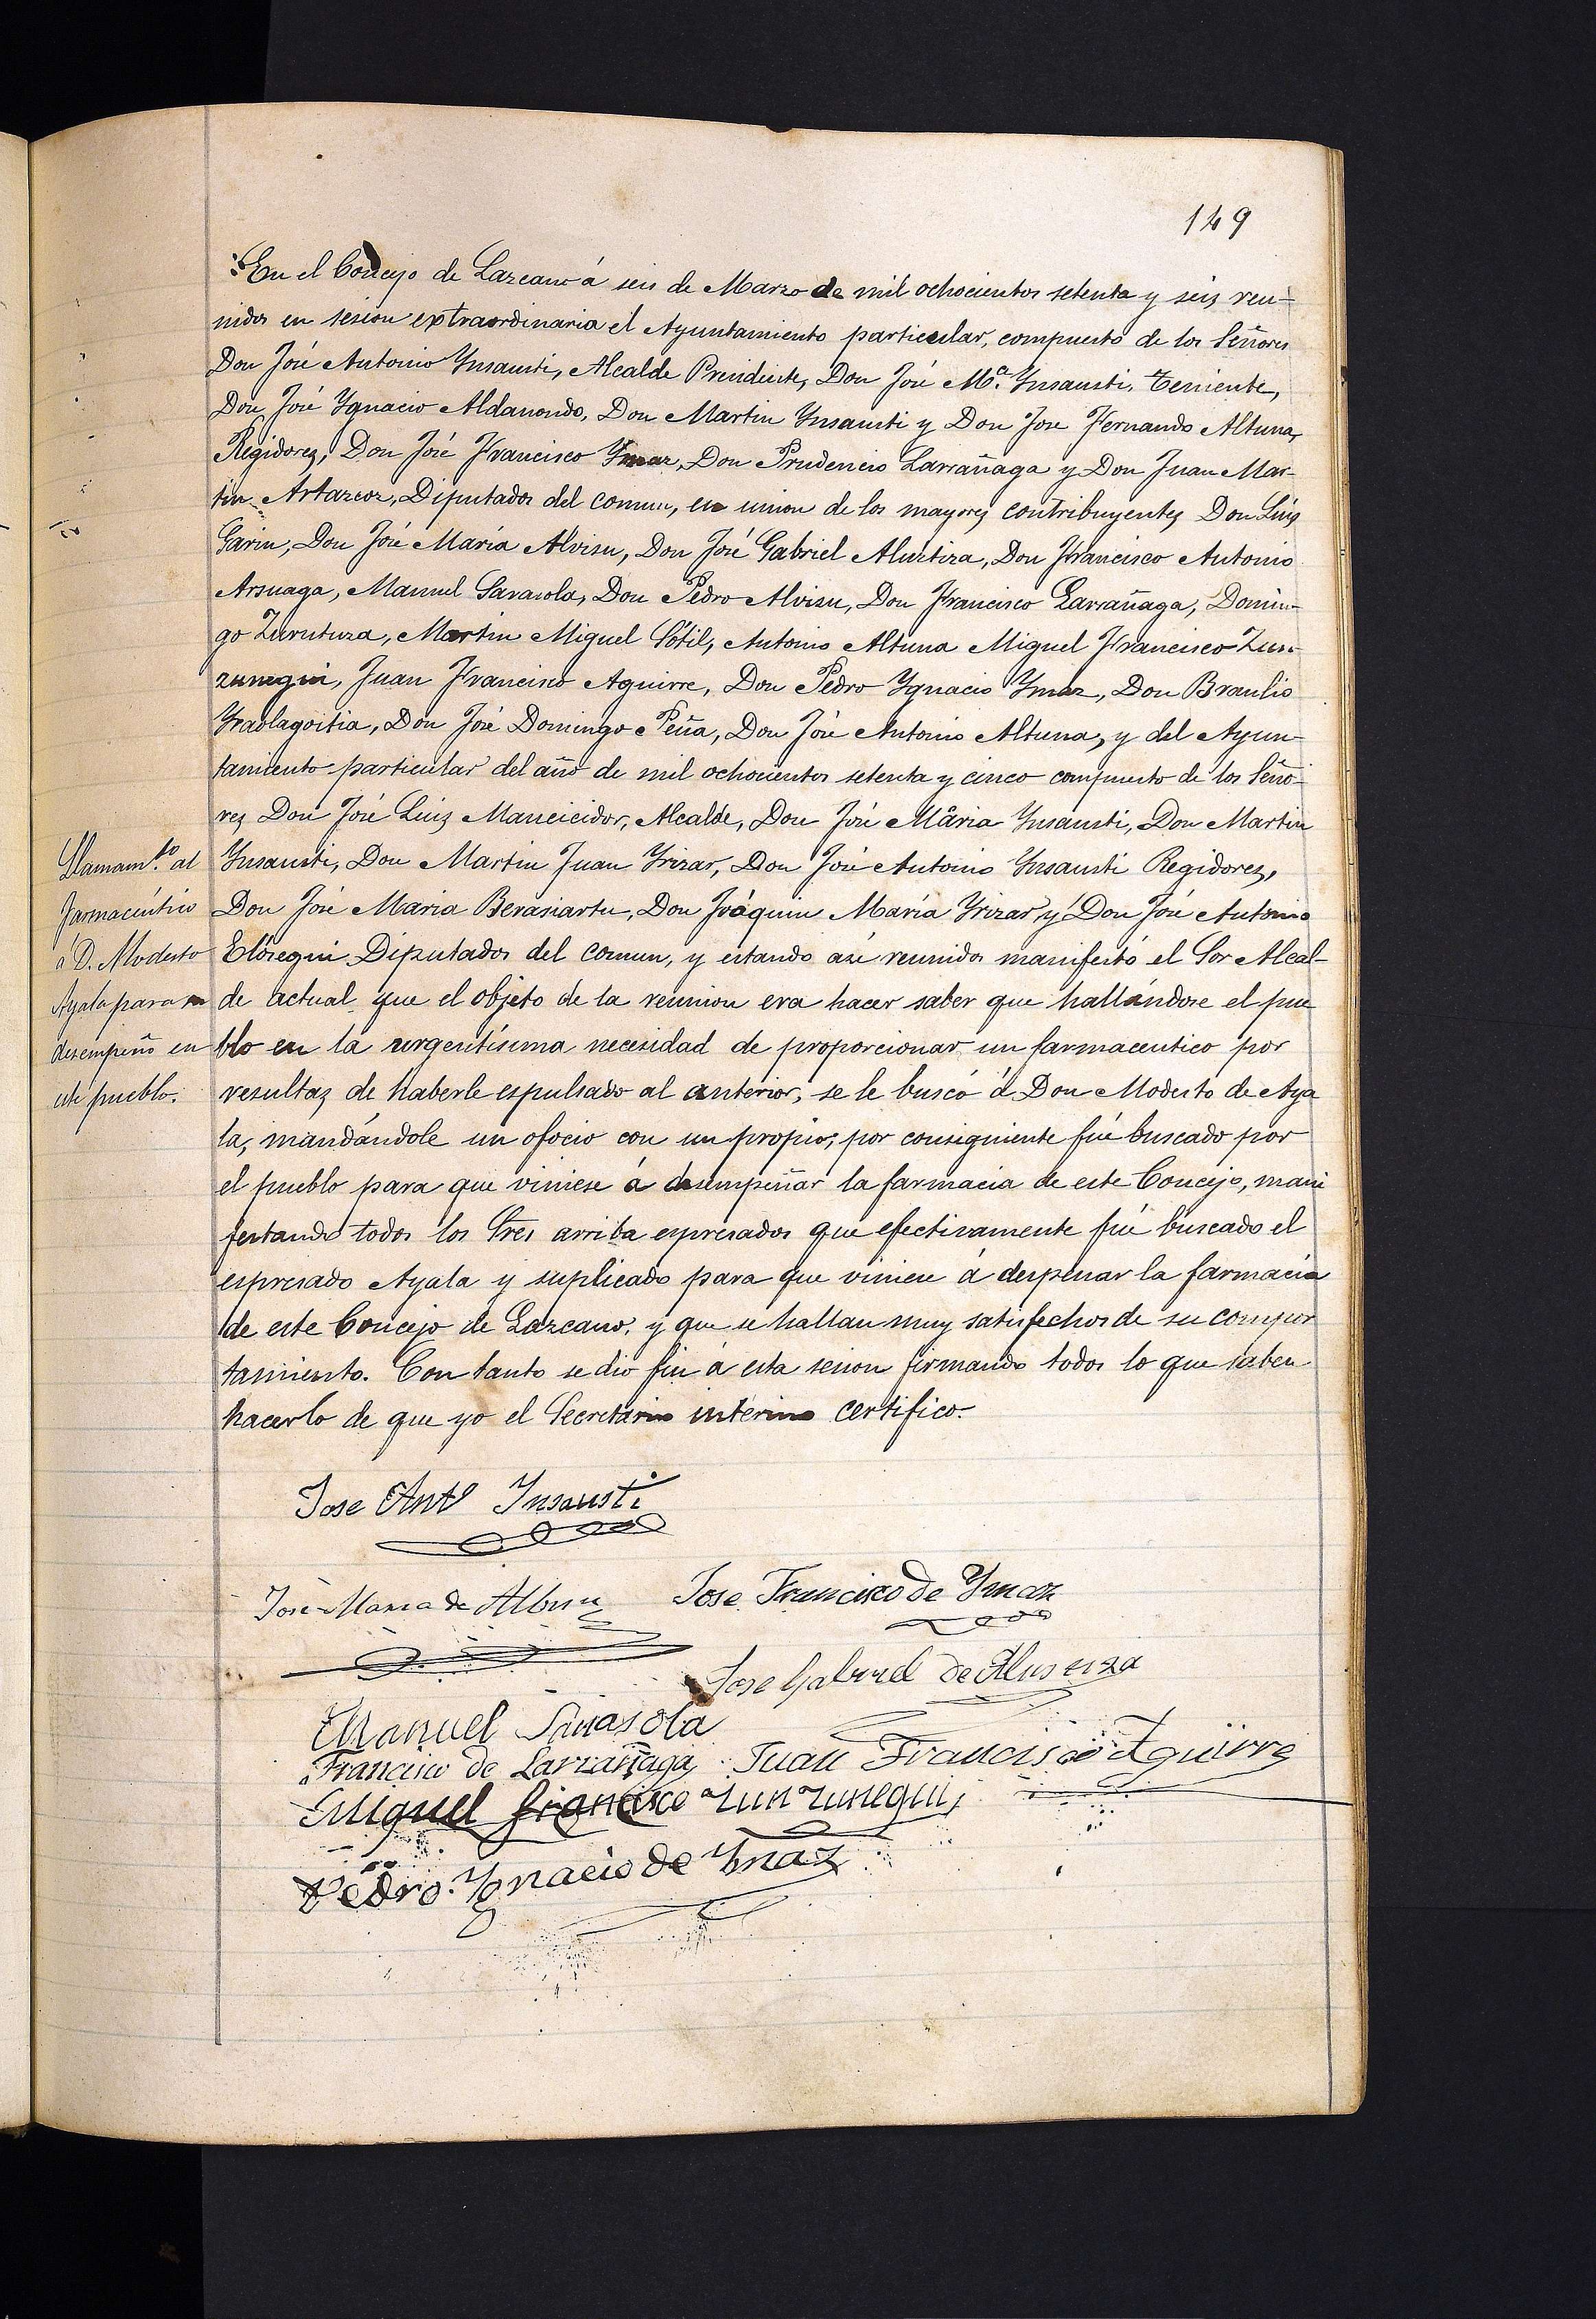 149
En el Concejo de Lazcano á seis de Marzo de mil ochocientos setenta y seis reu-
nidos en sesion extraordinaria el Ayuntamiento particular, compuesto de los Señores
Don José Antonio Ynsausti, Alcalde Presidente, Don José Mª. Ynsausti, Teniente,
Don José Ygnacio Aldanondo, Don Martin Ynsausti y Don Jose Fernando Altuna,
Regidores, Don José Francisco Ymaz, Don Prudencio Larrañaga y Don Juan Mar-
tin Artazcoz, Diputados del comun, en union de los mayores contribuyentes Don Luis
Garin, Don José María Alvisu, Don José Gabriel Alustiza, Don Francisco Antonio
Arsuaga, Manuel Sarasola, Don Pedro Alvisu, Don Francisco Larrañaga, Domin-
go Zurutuza, Martin Miguel Sótil, Antonio Altuna Miguel Francisco Zun-
zunegui, Juan Francisco Aguirre, Don Pedro Ygnacio Ymaz, Don Braulio
Yraolagoitia, Don José Domingo Peña, Don José Antonio Altuna, y del Ayun-
tamiento particular del año de mil ochocientos setenta y cinco compuesto de los Seño-
res Don José Luis Mancicidor, Alcalde, Don José Maria Ynsausti, Don Martin
Ynsausti, Don Martin Juan Yrizar, Don José Antonio Ynsausti Regidores,
Don José Maria Berasiartu, Don Joáquin María Yrizar y Don José Antonio
Elósegui Diputados del comun, y estando asi reunidos manifestó el Sor Alcal-
de actual que el objeto de la reunion era hacer saber que hallándose el pue
blo en la urgentísima necesidad de proporcionar un farmaceutico por
resultas de haberle espulsado al anterior, se le buscó á Don Modesto de Aya
la, mandándole un ofocio con un propio; por consiguiente fué buscado por
el pueblo para que viniese á desempeñar la farmacia de este Concejo, mani
festando todos los Sres arriba espresados que efectivamente fué buscado el
espresado Ayala y suplicado para que viniese á despenar la farmacia
de este Concejo de Lazcano, y que se hallan muy satisfechos de su compor
tamiento. Con tanto se dio fin á esta sesion firmando todos lo que saben
hacerlo de que yo el Secretario interino certifico.
Llamam.to al
farmacéutico
á D. Modesto
Ayala para su
desempeño en
este pueblo.
Jose Antº Insausti
José Maria de Albisu Jose Francisco de Ymaz
Jose Gabriel de Alustiza
Manuel Sarasola
Francisco de Larrañaga Juan Francisco Aguirre
Miguel francisco Zunzunegui
Pedro Ygnacio de Ymaz